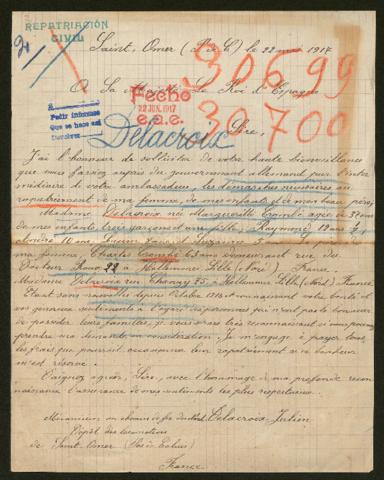 REPATRIACIÓN
CIVIL
Saint, Omer (P. de C.) le 22 mai 1917
30699
30700
A Sa Majesté Le Roi d'Espagne
Fecho
22 JUN. 1917
e.a.e.
Pedir informes
Que se hace así
Delacroix
Sire,
J'ai l'honneur de solliciter de votre haute bienveillance
que vous fassiez auprès du gouvernement allemand par l'inter
médiaire de votre ambassadeur, les démarches nécessaires au
rapatriement de ma femme, de mes enfants et de mon beau père,
Madame Delacroix née Marguerite Crombé agée de 37 ans
de mes enfants trois garçons et une fille, Raymond 12 ans
10 ans, Lucien 5
ma femme, Charles Crombé 63 ans demeurant rue du
Docteur Roux 22 à Hellemmes Lille (Nord) France.
Madame Delacroix rue Chanzy 75 à Hellemmes Lille (Nord) France
Etant sans nouvelles depuis Octobre 1915 et connaissant votre bonté et
vos généreux sentiments à l'égard des personnes qui n'ont pas le bonheur
de posséder leurs familles, je vous serais très reconnaissant si vous pouviez
prendre ma demande en considération. Je m'engage à payer tous
les frais que pourrait occasionner leur rapatriement si ce bonheur
m'est réservé.
Daignez agréer, Sire, avec l'hommage de ma profonde recon
naissance l'assurance de mes sentiments les plus respectueux.
Mécanicien au chemin de fer du Nord Delacroix Julien
Dépôt des locomotives
de Saint-Omer (Pas de Calais)
France